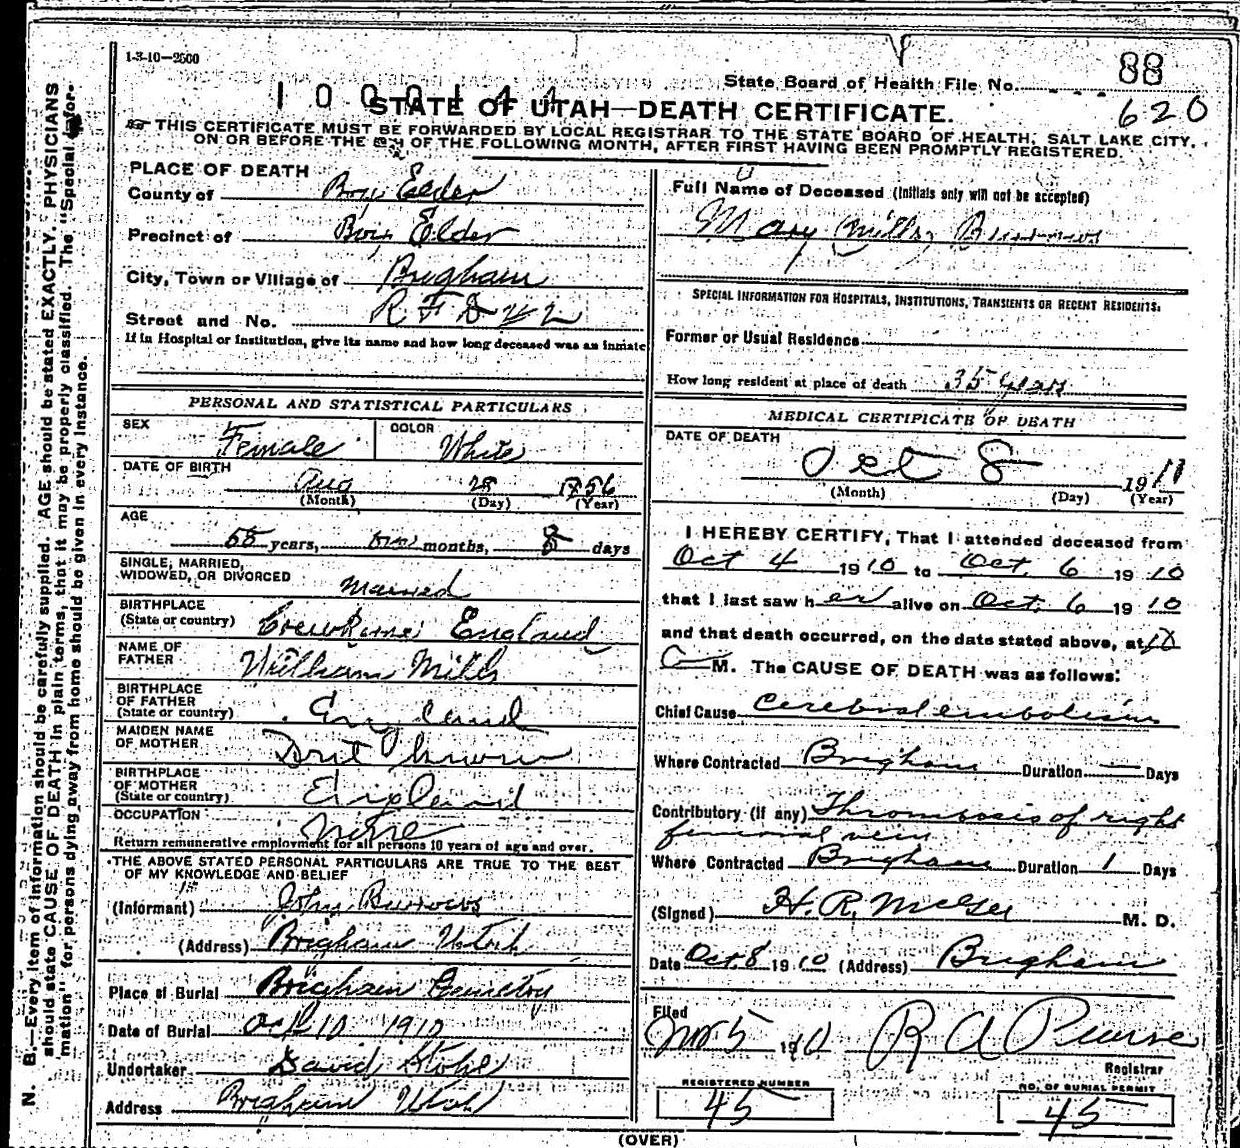 1-3-10—2500
88
State Board of Health File No.
1000144
620
STATE OF UTAH—DEATH CERTIFICATE.
THIS CERTIFICATE MUST BE FORWARDED BY LOCAL REGISTRAR TO THE STATE BOARD OF HEALTH, SALT LAKE CITY,
ON OR BEFORE THE OF THE FOLLOWING MONTH, AFTER FIRST HAVING BEEN PROMPTLY REGISTERED.
PLACE OF DEATH
County of Box Elder
Precinct of Box Elder
City, Town or Village of Brigham
Street and No. R F D
If in Hospital or Institution, give its name and how long deceased was an inmate
PERSONAL AND STATISTICAL PARTICULARS
SEX Female COLOR White
DATE OF BIRTH
Aug 28 1856
(Month) (Day) (Year)
AGE
years, months, 8 days
SINGLE, MARRIED,
WIDOWED, OR DIVORCED Married
BIRTHPLACE
(State or country) Crewkerne England
NAME OF
FATHER William Mills
BIRTHPLACE
OF FATHER
(State or country) England
MAIDEN NAME
OF MOTHER Dont know
BIRTHPLACE
OF MOTHER
(State or country) England
OCCUPATION
None
Return remunerative employment for all persons 10 years of age and over.
THE ABOVE STATED PERSONAL PARTICULARS ARE TRUE TO THE BEST
OF MY KNOWLEDGE AND BELIEF
(Informant) John Burrows
(Address) Brigham Utah
Place of Burial Brigham Cemetery
Date of Burial Oct 10 1910
Undertaker David Stohl
Address Brigham Utah
Full Name of Deceased (Initials only will not be accepted)
Mary Mills Burrows
SPECIAL INFORMATION FOR HOSPITALS, INSTITUTIONS, TRANSIENTS OR RECENT RESIDENTS.
Former or Usual Residence
How long resident at place of death 35 years
MEDICAL CERTIFICATE OF DEATH
DATE OF DEATH
Oct 8 19
(Month) (Day) (Year)
I HEREBY CERTIFY, That I attended deceased from
Oct 4 1910 to Oct. 6 1910
that I last saw her alive on Oct. 6 1910
and that death occurred, on the date stated above, at
M. The CAUSE OF DEATH was as follows:
Chief Cause Cerebral embolism
Where Contracted Brigham Duration — Days
Contributory (if any) Thrombosis of right
femoral vein
Where Contracted Brigham Duration 1 Days
(Signed) H. R. McGee M. D.
Date Oct. 8 1910 (Address) Brigham
Filed
Nov 5 1910 R A Pearse
Registrar
REGISTERED NUMBER
45
NO. OF BURIAL PERMIT
45
(OVER)
N. B.—Every item of information should be carefully supplied. AGE should be stated EXACTLY. PHYSICIANS
should state CAUSE OF DEATH in plain terms, that it may be properly classified. The "Special Infor-
mation" for persons dying away from home should be given in every instance.